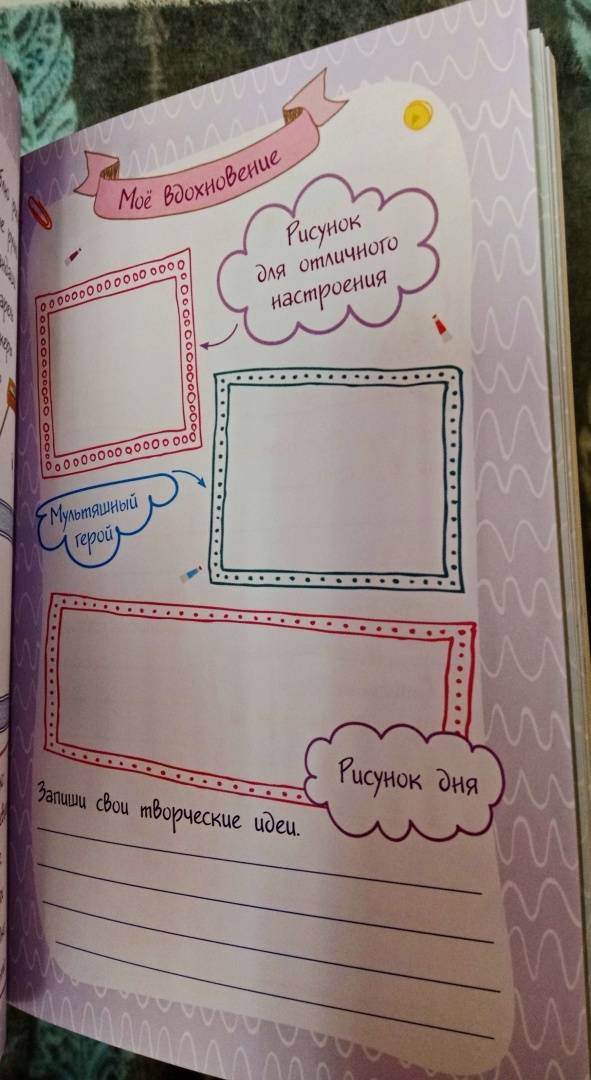 Моё вдохновение
Рисунок
для отличного
настроения
Мультяшный
герой
Рисунок дня
Запиши свои творческие идеи.